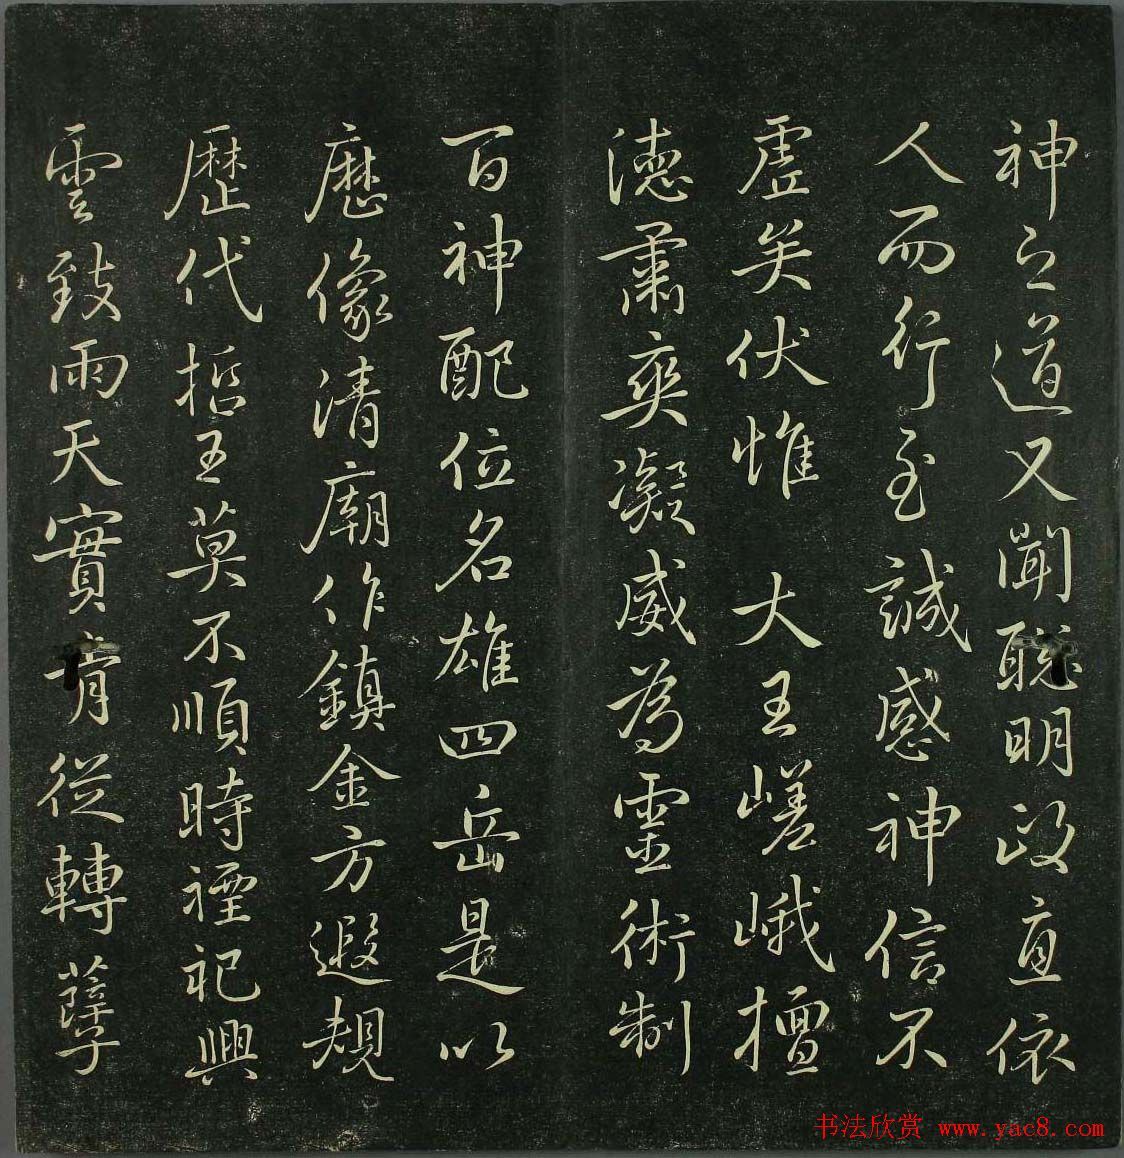 神之道又聞聰明政直依
人而行至誠感神信不
虛矣伏惟 大王嵯峨擅
德肅爽凝威為靈術制
百神配位名雄四岳是以
歷像清廟作鎮金方遐規
歷代哲王莫不順時禋祀興
雲致雨天實肎從轉孽
书法欣赏 www.yac8.com